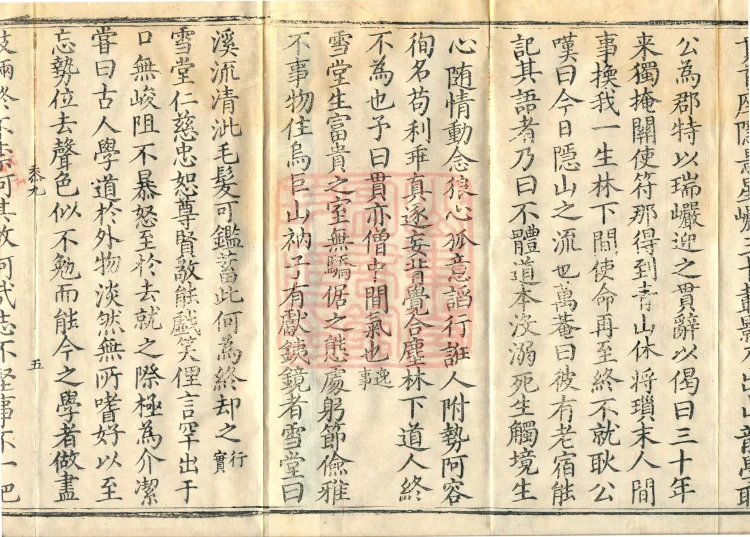 公為郡特以瑞巖迎之貫辭以偈曰三十年
来獨掩關使符那得到青山休将瑣末人間
事換我一生林下閒使命再至終不就耿公
嘆曰今日隱山之流也萬菴曰彼有老宿能
記其語者乃曰不體道本没溺死生觸境生
心随情動念狼心狐意諂行誑人附勢阿容
徇名苟利乖真逐妄背覺合塵林下道人終
不為也予曰貫亦僧中間氣也逸事
雪堂生富貴之室無驕倨之態處躬節儉雅
不事物住烏巨山衲子有獻鐵鏡者雪堂曰
溪流清泚毛髮可鑑蓄此何為終却之行實
雪堂仁慈忠恕尊賢敬能戲笑俚言罕出于
口無峻阻不暴怒至於去就之際極為介潔
嘗曰古人學道於外物淡然無所嗜好以至
忘勢位去聲色似不勉而能今之學者做盡
五